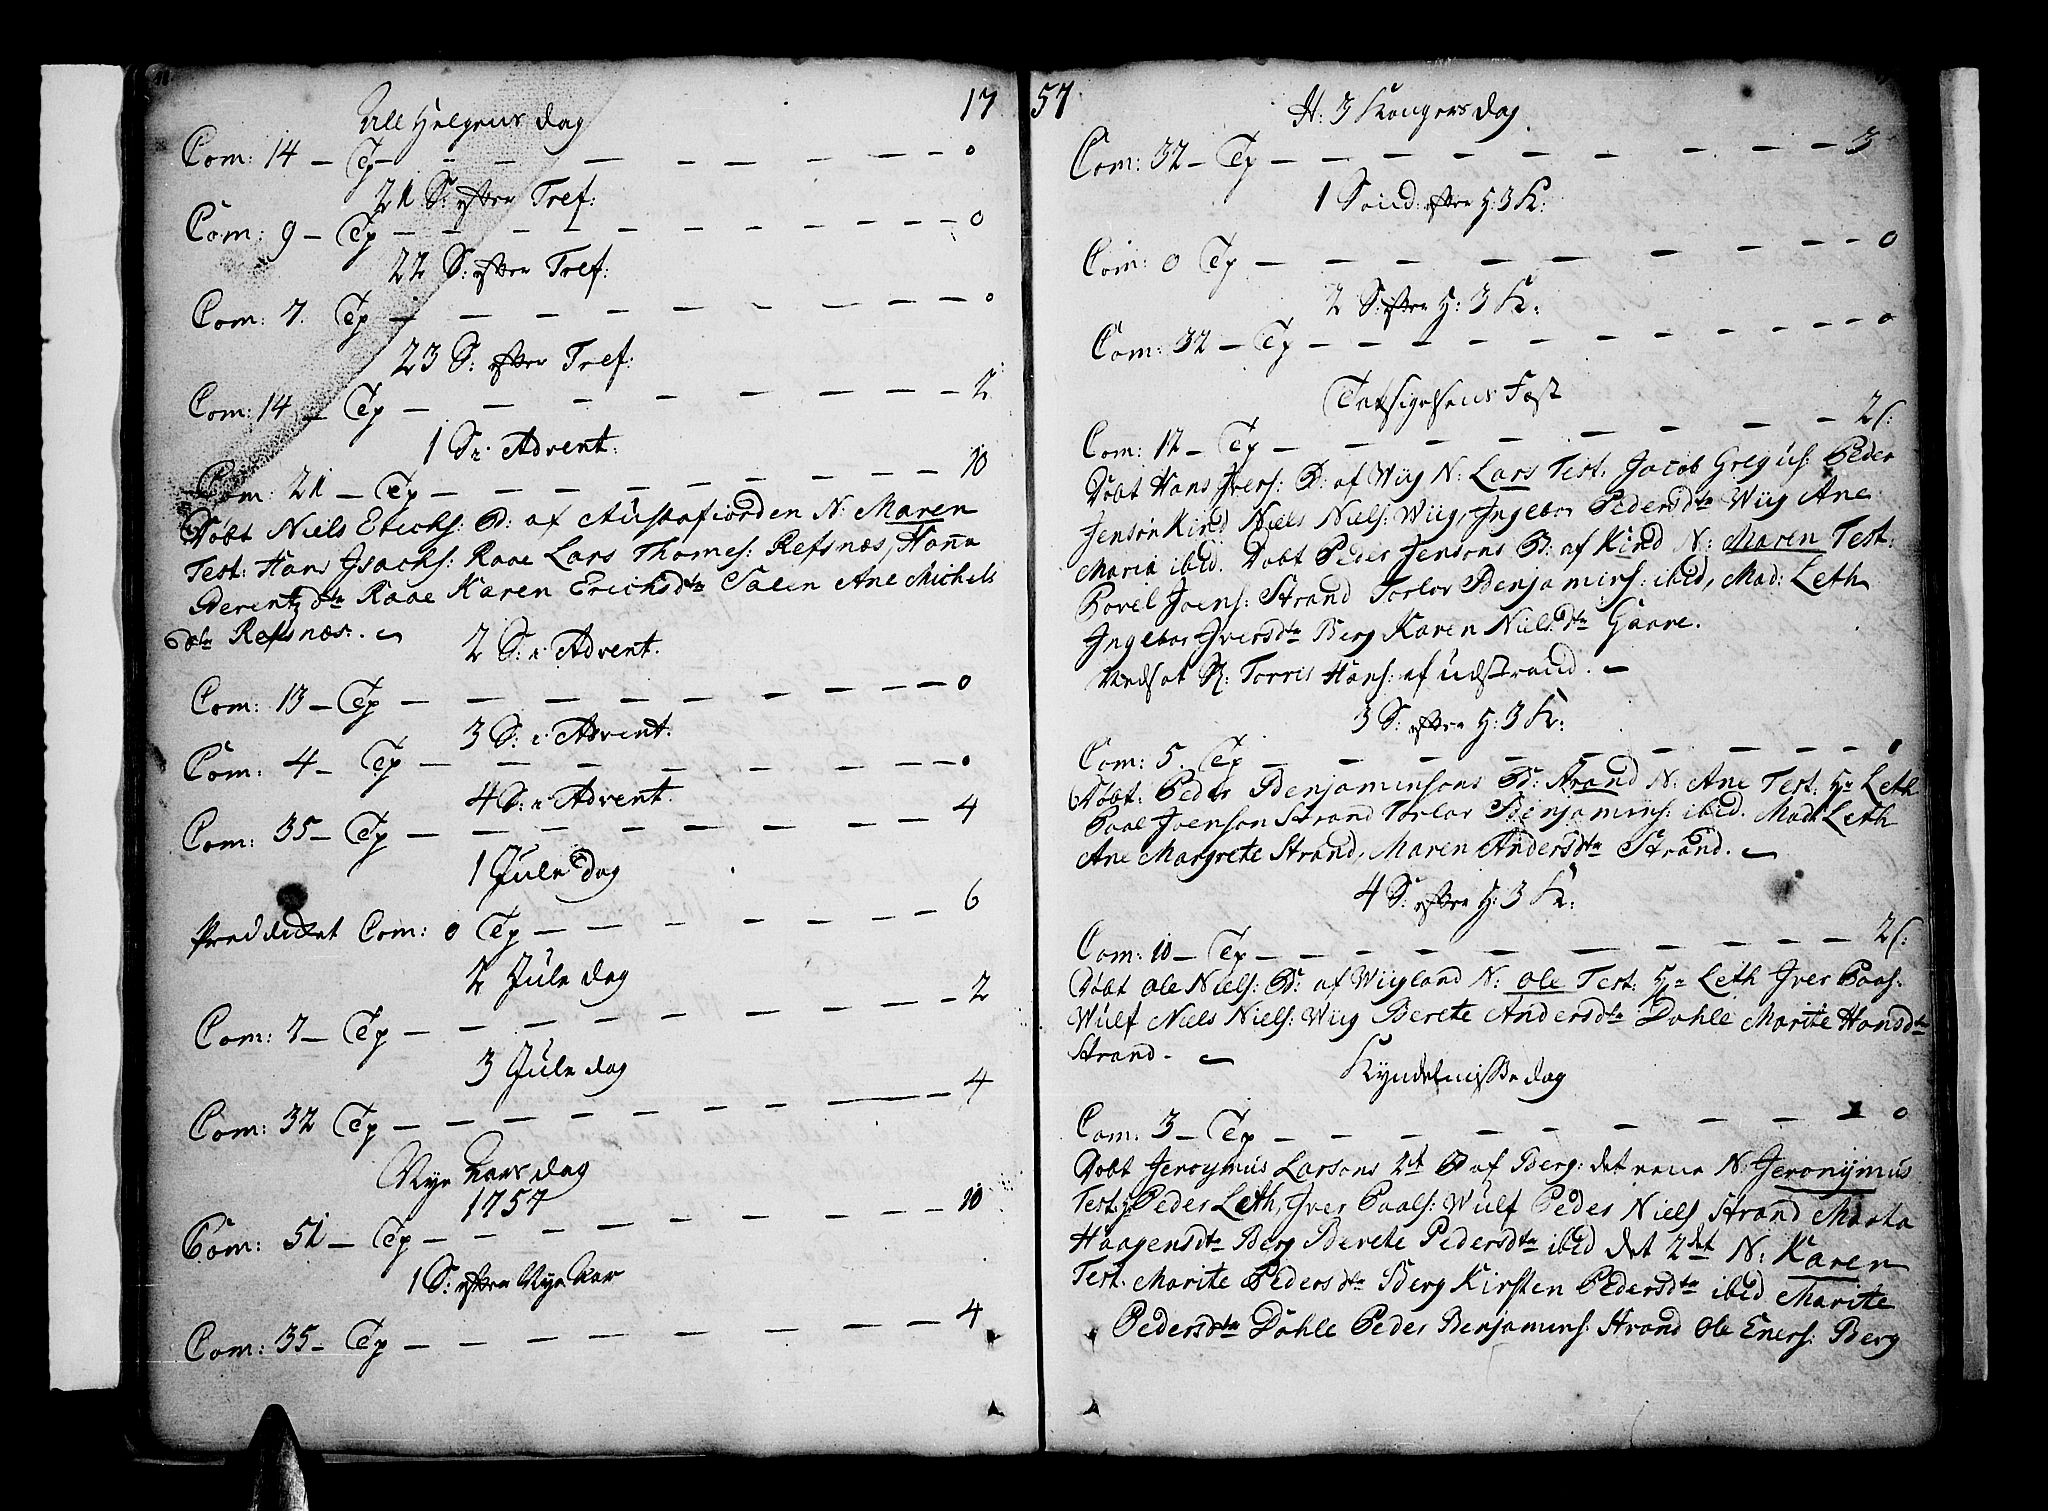 17
All Helgens dag
Com: 14 – Tp – – – – – – – – 0
21 S: efter Tref:
Com: 9 – Tp – – – – – – – – 0
22 S: efter Tref:
Com: 7. Tp – – – – – – – – 0
23 S: efter Tref:
Com: 14 – Tp – – – – – – – – 2
1 S: i Advent:
Com: 21 – Tp – – – – – – – – 10
Døbt Niels Erichs: B: af Austafiorden N: Maren
Test: Hans Jsachs: Raae Lars Thomes: Refsnæs, Hanna
Berentz dtr Raae Karen Erichsdtr Salen Ane Michels
dtr Refsnæs. –
2 S: i Advent.
Com: 13 – Tp – – – – – – – – 0
3 S: i Advent.
Com: 4 – Tp – – – – – – – – 0
4 S: i Advent.
Com: 35 – Tp – – – – – – – – 4
1 Jule Dag
Prædicket Com: 0 Tp – – – – – – 6
2 Jule dag
Com: 7 – Tp – – – – – – – – 2
3 Jule dag
Com: 32 Tp – – – – – – – – 4
Nye Aars dag
1757
Com: 51 – Tp – – – – – – – – 10
1 S: efter Nye Aar
Com: 35 – Tp – – – – – – – – 4
57
H: 3 Kongers dag
Com: 32 – Tp – – – – – – – – 3
1 Sønd: efter H: 3 K:
Com: 0 Tp – – – – – – – – 0
2 S: efter H: 3 K:
Com: 32 – Tp – – – – – – – – 0
Taksigelsens Fest
Com: 12 – Tp – – – – – – – – 2 s:
Døbt Hans Jvers: B: af Wiig N: Lars Test: Jacob Gregus: Peder
Jenson Kind Niels Niels: Wiig, Jngebor Pedersdtr Wiig Ane
Maria ibid. Døbt Peder Jensons B: af Kind N: Maren Test:
Povel Joens: Strand Torlov Benjamins: ibid, Mad: Leth
Jngebor Jversdtr Berg Karen Nielsdtr Gaare.
Torris Hans: af udstrand. –
3 S: efter H: 3 K:
Com: 5. Tp – – – – – – – – 0
Døbt: Peder Benjaminsons B: Strand N: Ane Test: Hr Leth
Paal Joenson Strand Torlov Benjamins: ibid. Mad: Leth
Ane Margrete Strand, Maren Andersdtr Strand. –
4 S: efter H: 3 K:
Com: 10 – Tp – – – – – – – – 2 s:
Døbt Ole Niels: B: af Wiigland N: Ole Test: Hr Leth Jver Paas:
Wulf Niels Niels: Wiig Berete Andersdtr Dahle Marite Hansdtr
Strand. –
Kyndelmisse dag
Com: 3 – Tp – – – – – – – – 0
Døbt Jeroymus Larsons 2de B af Berg: det eene N: Jeronijmus
Test: Hr Peder Leth, Jver Paals: Wulf Peder Niels Strand Marta
Haagensdtr Berg Berete Pedersdtr ibid det 2det N: Karen
Test. Marite Pedersdtr Berg Kirsten Pedersdtr ibid Marite
Pedersdtr Dahle Peder Benjamins: Strand Ole Eners: Berg